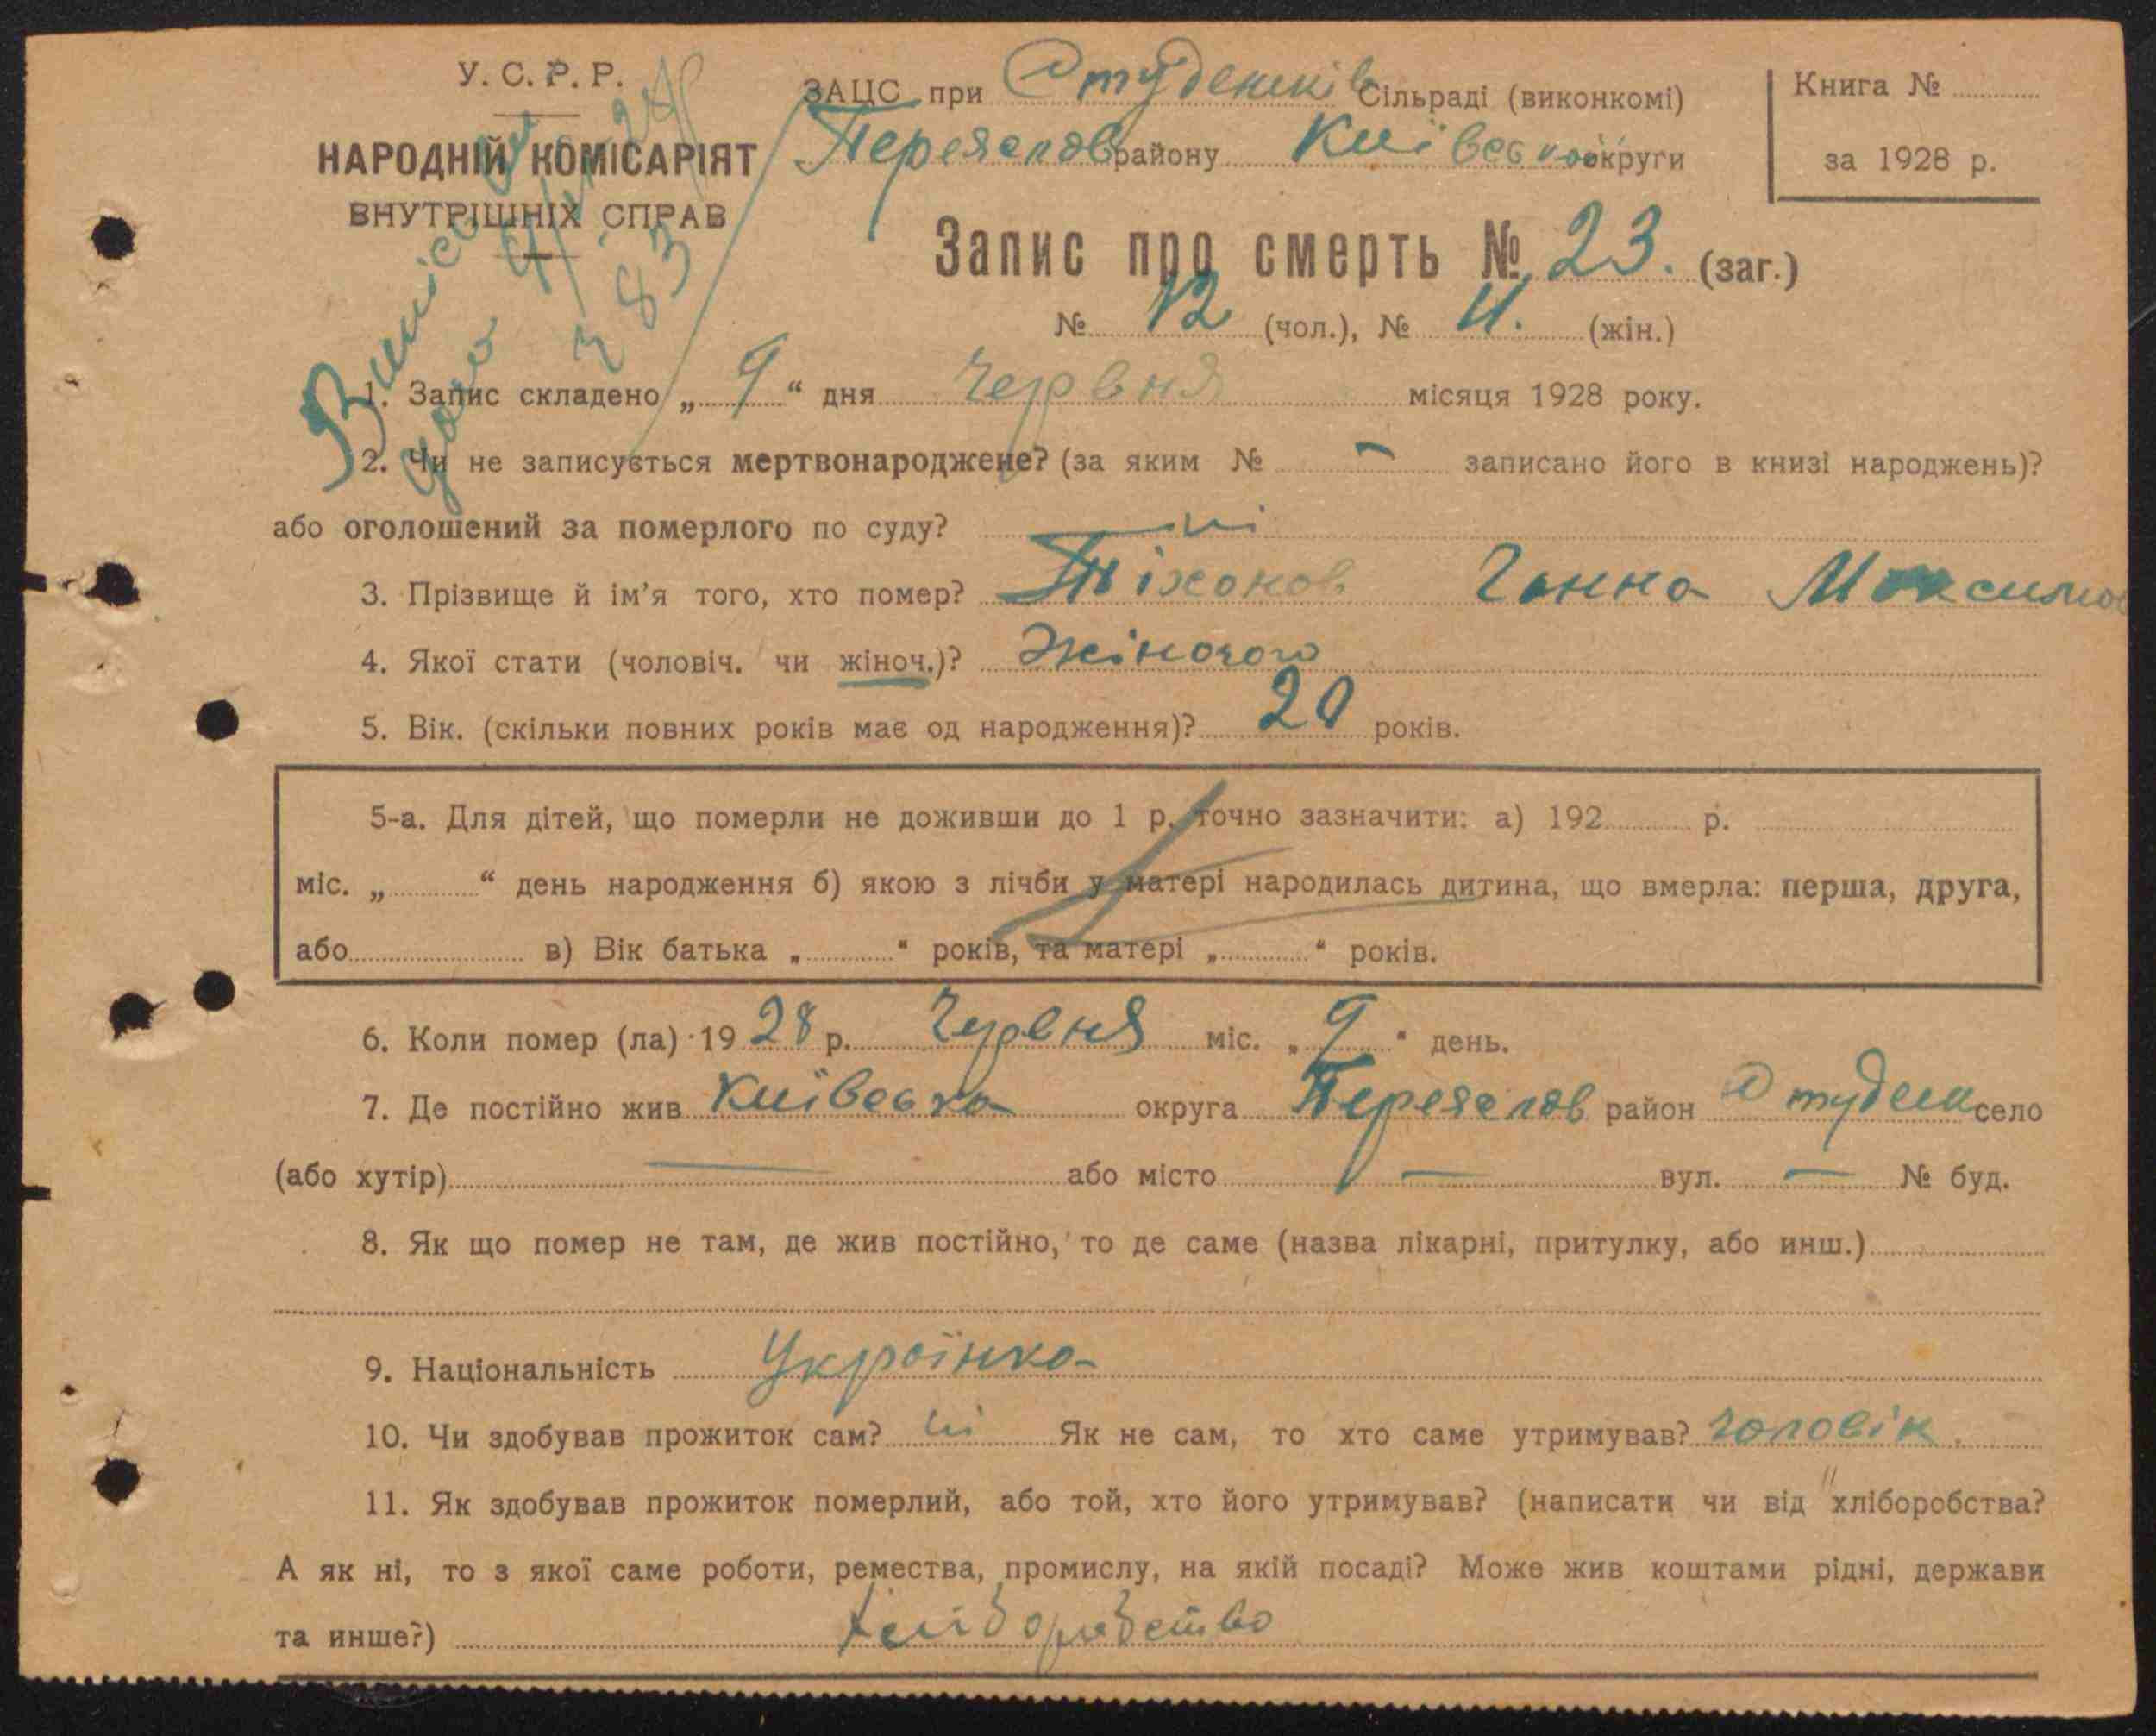 У.С.Р.Р.
НАРОДНІЙ КОМІСАРІЯТ
ВНУТРІШНІХ СПРАВ
ЗАЦС при Студеників Сільраді (виконкомі)
Переяслов району Київської округи
Книга №
за 1928 р.
Запис про смерть № 23. (заг.)
№ 12 (чол.), № 11. (жін.)
1. Запис складено „ 9 “ дня Червня місяця 1928 року.
2. Чи не записується мертвонароджене? (за яким № – записано його в книзі народжень)?
або оголошений за померлого по суду? ні
3. Прізвище й ім'я того, хто помер? Тіхонов Ганна Максимов
4. Якої стати (чоловіч. чи жіноч.)? Жіночого
5. Вік. (скільки повних років має од народження)? 20 років.
5-а. Для дітей, що померли не доживши до 1 р. точно зазначити: а) 192 р.
міс. „ “ день народження б) якою з лічби у матері народилась дитина, що вмерла: перша, друга,
або в) Вік батька „ “ років, та матері „ “ років.
6. Коли помер (ла) 19 28 р. Червня міс. „ 9 “ день.
7. Де постійно жив Київська округа Переяслов район Студеник село
(або хутір) — або місто — вул. — № буд.
8. Як що помер не там, де жив постійно, то де саме (назва лікарні, притулку, або инш.)
9. Національність Українка
10. Чи здобував прожиток сам? ні Як не сам, то хто саме утримував? чоловік.
11. Як здобував прожиток померлий, або той, хто його утримував? (написати чи від хліборобства?
А як ні, то з якої саме роботи, ремества, промислу, на якій посаді? Може жив коштами рідні, держави
та инше?) хліборобство